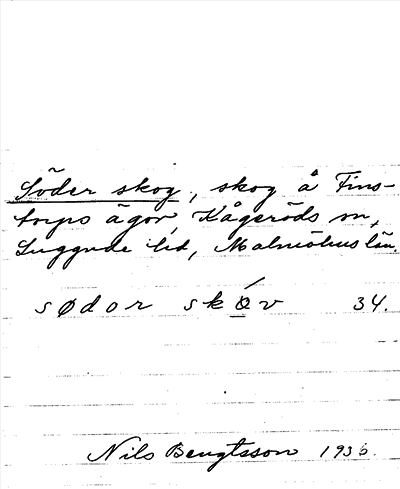 Söder skog, skog å Fins-
torps ägor, Kågeröds sn,
Luggude hd, Malmöhus län.
södor skǿv 34.
Nils Bengtsson 1936.